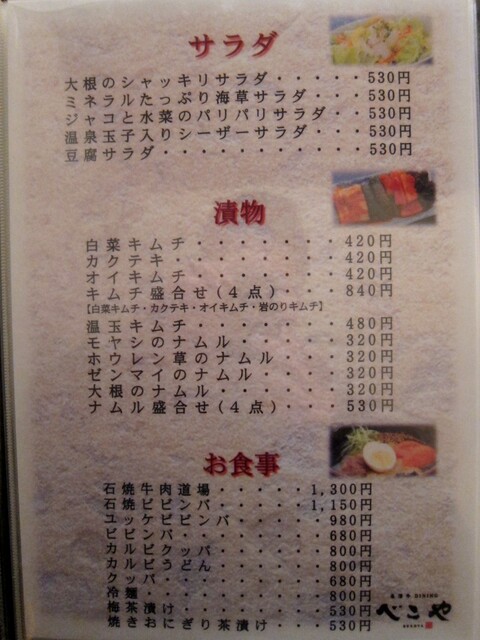 サラダ
大根のシャッキリサラダ・・・・・530円
ミネラルたっぷり海草サラダ・・・530円
ジャコと水菜のパリパリサラダ・・530円
温泉玉子入りシーザーサラダ・・・530円
豆腐サラダ・・・・・・・・・・・530円
漬物
白菜キムチ・・・・・・・420円
カクテキ・・・・・・・・420円
オイキムチ・・・・・・・420円
キムチ盛合せ(4点)・・・840円
【白菜キムチ・カクテキ・オイキムチ・岩のりキムチ】
温玉キムチ・・・・・・・480円
モヤシのナムル・・・・・320円
ホウレン草のナムル・・・320円
ゼンマイのナムル・・・・320円
大根のナムル・・・・・・320円
ナムル盛合せ(4点)・・・530円
お食事
石焼牛肉道場・・・・・1,300円
石焼ビビンバ・・・・・1,150円
ユッケビビンバ・・・・・980円
ビビンバ・・・・・・・・680円
カルビクッパ・・・・・・800円
カルビうどん・・・・・・800円
クッパ・・・・・・・・・680円
冷麺・・・・・・・・・・800円
梅茶漬け・・・・・・・・530円
焼きおにぎり茶漬け・・・530円
DINING
べこや